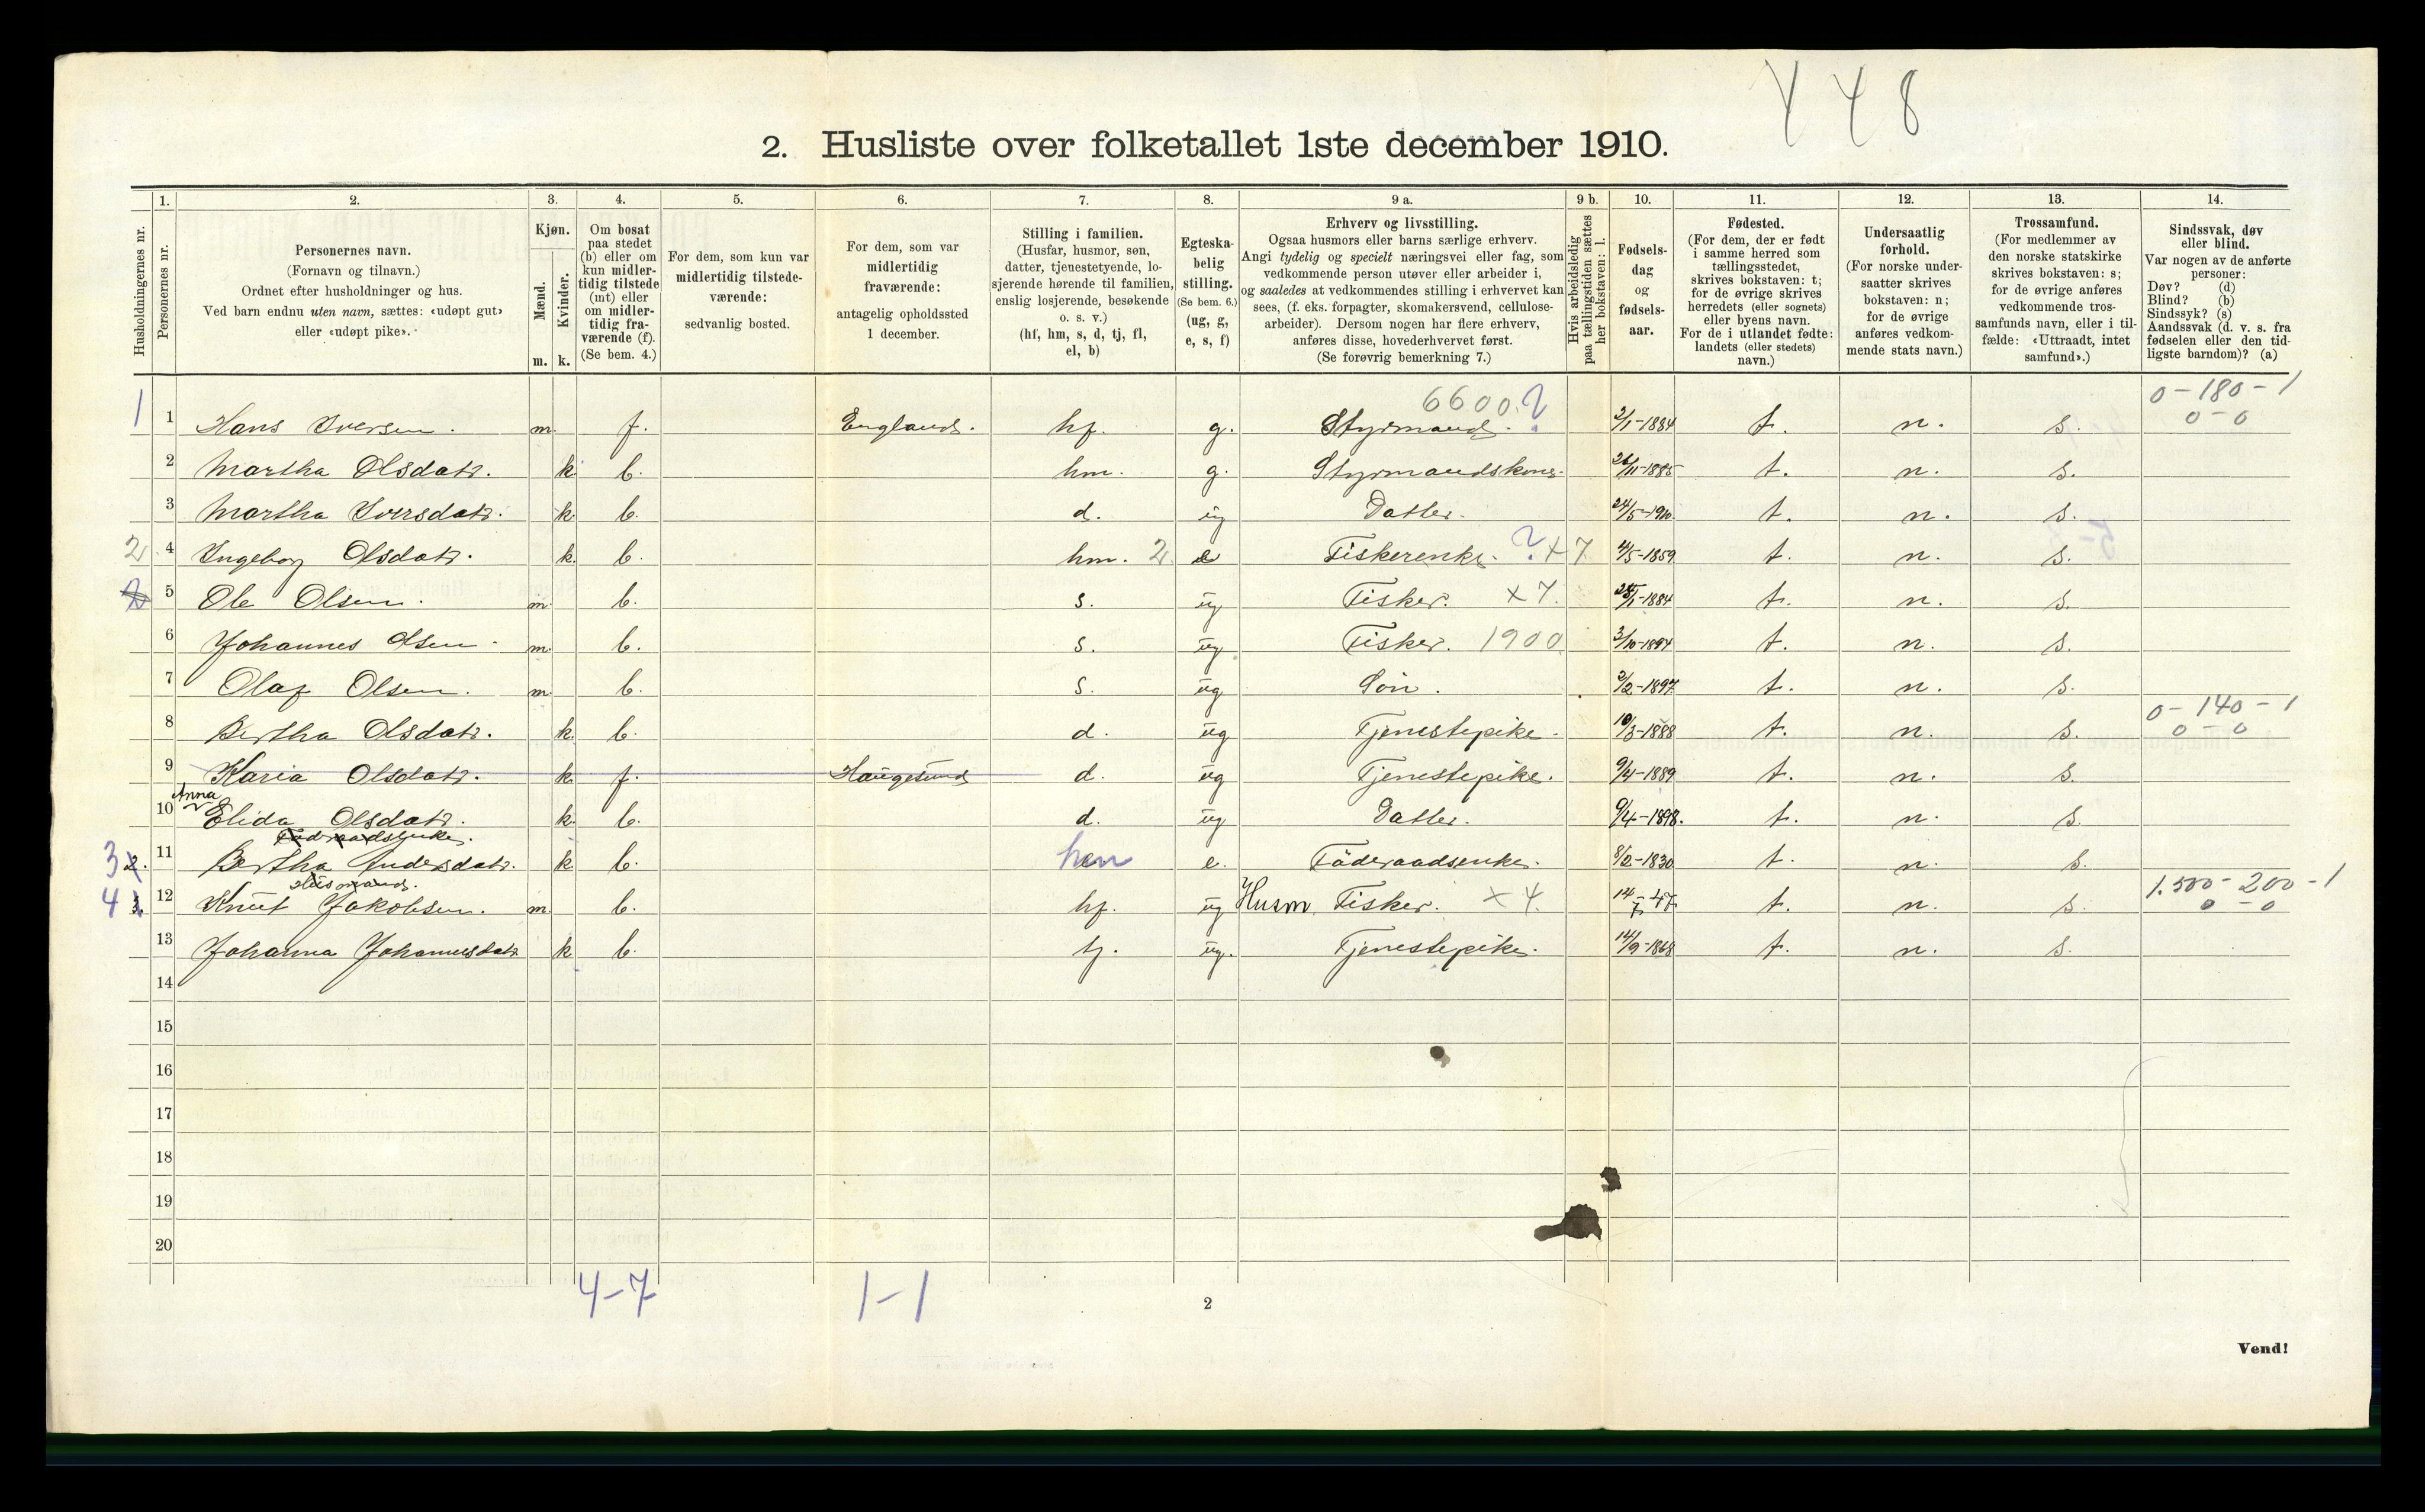 448
2. Husliste over folketallet 1ste december 1910.
1. 2. 3. 4. 5. 6. 7. 8. 9 a. 9 b. 10. 11. 12. 13. 14.
Husholdningernes nr.
Personernes nr.
Personernes navn.
(Fornavn og tilnavn.)
Ordnet efter husholdninger og hus.
Ved barn endnu uten navn, sættes: «udøpt gut»
eller «udøpt pike».
Kjøn.
Mænd.
Kvinder.
m. k.
Om bosat
paa stedet
(b) eller om
kun midler-
tidig tilstede
(mt) eller
om midler-
tidig fra-
værende (f).
(Se bem. 4.)
For dem, som kun var
midlertidig tilstede-
værende:
sedvanlig bosted.
For dem, som var
midlertidig
fraværende:
antagelig opholdssted
1 december.
Stilling i familien.
(Husfar, husmor, søn,
datter, tjenestetyende, lo-
sjerende hørende til familien,
enslig losjerende, besøkende
o. s. v.)
(hf, hm, s, d, tj, fl,
el, b)
Egteska-
belig
stilling.
(Se bem. 6.)
(ug, g,
e, s, f)
Erhverv og livsstilling.
Ogsaa husmors eller barns særlige erhverv.
Angi tydelig og specielt næringsvei eller fag, som
vedkommende person utøver eller arbeider i,
og saaledes at vedkommendes stilling i erhvervet kan
sees, (f. eks. forpagter, skomakersvend, cellulose-
arbeider). Dersom nogen har flere erhverv,
anføres disse, hovederhvervet først.
(Se forøvrig bemerkning 7.)
Hvis arbeidsledig
paa tællingstiden sættes
her bokstaven: l.
Fødsels-
dag
og
fødsels-
aar.
Fødested.
(For dem, der er født
i samme herred som
tællingsstedet,
skrives bokstaven: t;
for de øvrige skrives
herredets (eller sognets)
eller byens navn.
For de i utlandet fødte:
landets (eller stedets)
navn.)
Undersaatlig
forhold.
(For norske under-
saatter skrives
bokstaven: n;
for de øvrige
anføres vedkom-
mende stats navn.)
Trossamfund.
(For medlemmer av
den norske statskirke
skrives bokstaven: s;
for de øvrige anføres
vedkommende tros-
samfunds navn, eller i til-
fælde: «Uttraadt, intet
samfund».)
Sindssvak, døv
eller blind.
Var nogen av de anførte
personer:
Døv? (d)
Blind? (b)
Sindssyk? (s)
Aandssvak (d. v. s. fra
fødselen eller den tid-
ligste barndom)? (a)
6600 ? 0-180-1
1 1 Hans Iversen. m. f. England. hf. g. Styrmand. 2/1-1884 t. n. s. 0-0
2 Martha Olsdatr. k. b. hm. g. Styrmandskone. 26/11-1885 t. n. s.
3 Martha Iversdatr. k. b. d. ug Datter. 24/5-1910 t. n. s.
2 4 Ingeborg Olsdatr. k. b. hm. 2 e Fiskerenke. ? x7 4/5-1859 t. n. s.
5 Ole Olsen. m. b. s. ug Fisker. x7. 1-1884 t. n. s.
6 Johannes Olsen. m. b. s. ug Fisker. 1900 3/10-1894 t. n. s.
7 Olaf Olsen. m. b. s. ug Søn. 2/2-1897 t. n. s.
0-140-1
8 Bertha Olsdatr. k. b. d. ug Tjenestepike. 10/3-1888 t. n. s. 0-0
9 Karia Olsdatr. k. f. Haugesund d. ug Tjenestepike. 9/4-1889 t. n. s.
Anna
10 Elida Olsdatr. k. b. d. ug Datter. 9/4-1898. t. n. s.
3 2. 11 Bertha Andersdatr. k. b. hm e. Föderaadsenke. 8/2-1830 t. n. s.
Husmand. 1.500-200-1
4 3. 12 Knut Jakobsen. m. b. hf. ug Husm. Fisker. x4. 14/7-47 t. n. s. 0-0
13 Johanna Johannesdatr k b. tj. ug. Tjenestepike. 14/9-1868 t. n. s.
14
15
16
17
18
19
20
4-7 1-1
2
Vend!